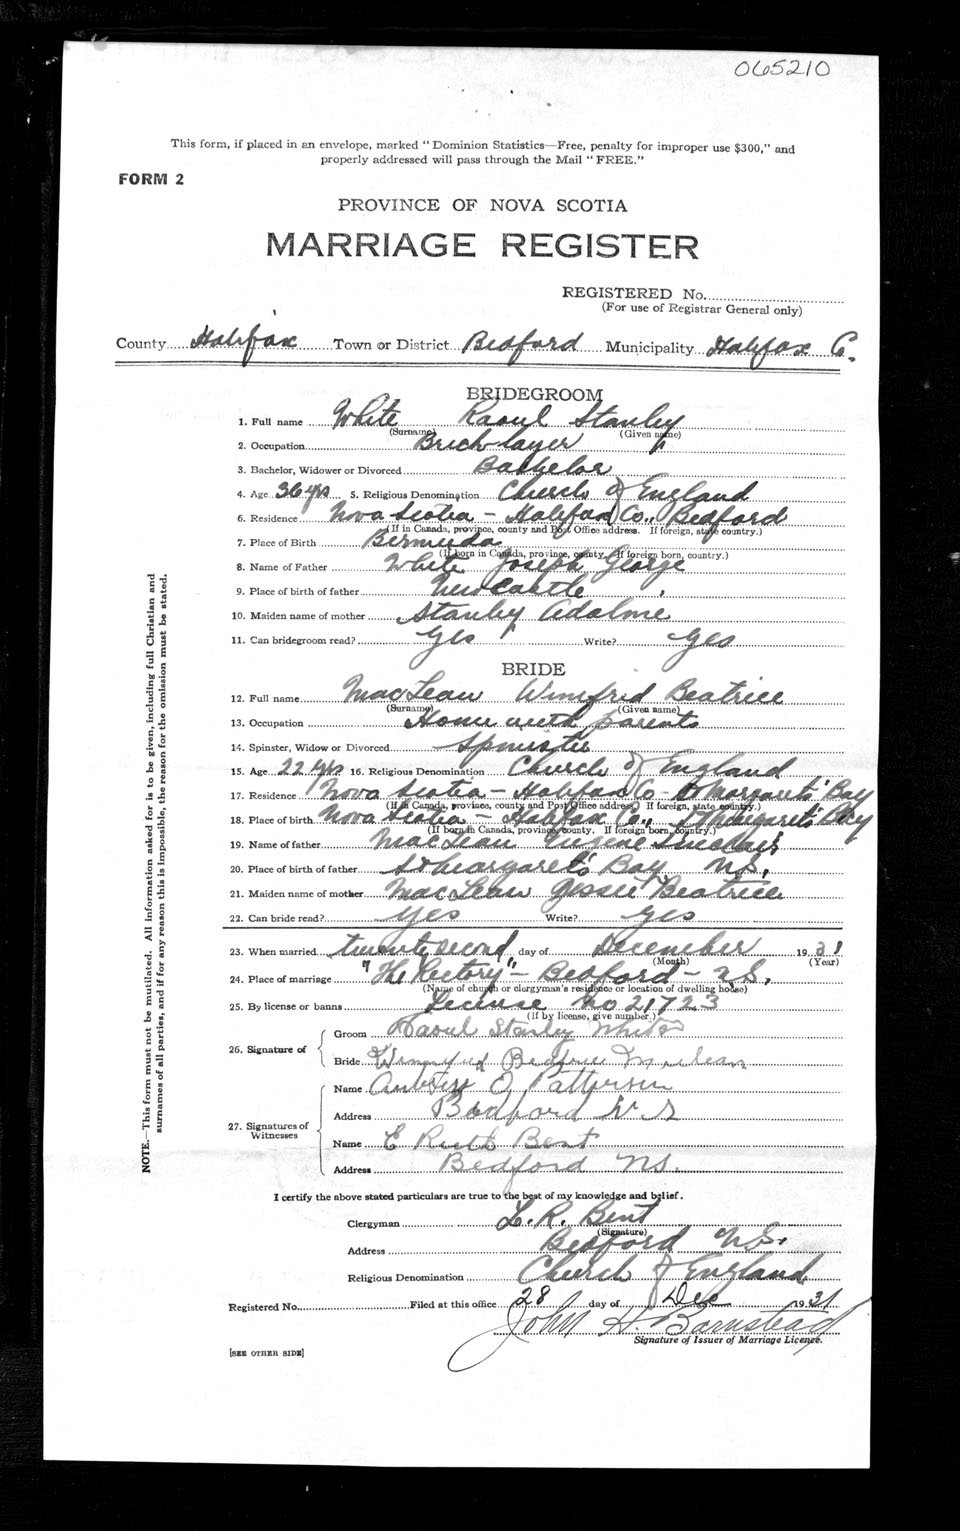 065210
This form, if placed in an envelope, marked "Dominion Statistics—Free, penalty for improper use $300," and
properly addressed will pass through the Mail "FREE."
FORM 2
PROVINCE OF NOVA SCOTIA
MARRIAGE REGISTER
REGISTERED No.
(For use of Registrar General only)
County Halifax Town or District Bedford Municipality Halifax C.
BRIDEGROOM
1. Full name White Raoul Stanley
(Surname) (Given name)
2. Occupation Brick-layer
3. Bachelor, Widower or Divorced Bachelor
4. Age 36 yrs 5. Religious Denomination Church of England
6. Residence Nova Scotia - Halifax Co., Bedford
(If in Canada, province, county and Post Office address. If foreign, state country.)
7. Place of Birth Bermuda
(If born in Canada, province, county. If foreign born, country.)
8. Name of Father White Joseph George
9. Place of birth of father Newcastle
10. Maiden name of mother Stanley
11. Can bridegroom read? Yes Write? Yes
BRIDE
12. Full name MacLean Winifred Beatrice
(Surname) (Given name)
13. Occupation Home with parents
14. Spinster, Widow or Divorced Spinster
15. Age 22 yrs 16. Religious Denomination Church of England
17. Residence Nova Scotia - Halifax Co - St Margaret's Bay
(If in Canada, province, county and Post Office address. If foreign, state country.)
18. Place of birth Nova Scotia - Halifax Co., St Margaret's Bay
(If born in Canada, province, county. If foreign born, country.)
19. Name of father MacLean Eugene Sinclair
20. Place of birth of father St Margaret's Bay N.S,
21. Maiden name of mother MacLean Jessie Beatrice
22. Can bride read? Yes Write? Yes
23. When married twenty second day of December 1931
(Month) (Year)
24. Place of marriage "The Rectory" - Bedford - N.S,
(Name of church or clergyman's residence or location of dwelling house)
25. By license or banns License No 21723
(If by license, give number.)
26. Signature of
Groom Raoul Stanley White
Bride Winnifred Beatrice
27. Signatures of Witnesses
Name O Patterson
Address Bedford N.S
Name E Ruth Bent
Address Bedford N.S.
I certify the above stated particulars are true to the best of my knowledge and belief.
Clergyman L. R. Bent
(Signature)
Address Bedford N.S.
Religious Denomination Church of England
Registered No. Filed at this office 28 day of Dec 1931
John H. Barnstead
Signature of Issuer of Marriage Licence.
[SEE OTHER SIDE]
NOTE.—This form must not be mutilated. All information asked for is to be given, including full Christian and
surnames of all parties, and if for any reason this is impossible, the reason for the omission must be stated.